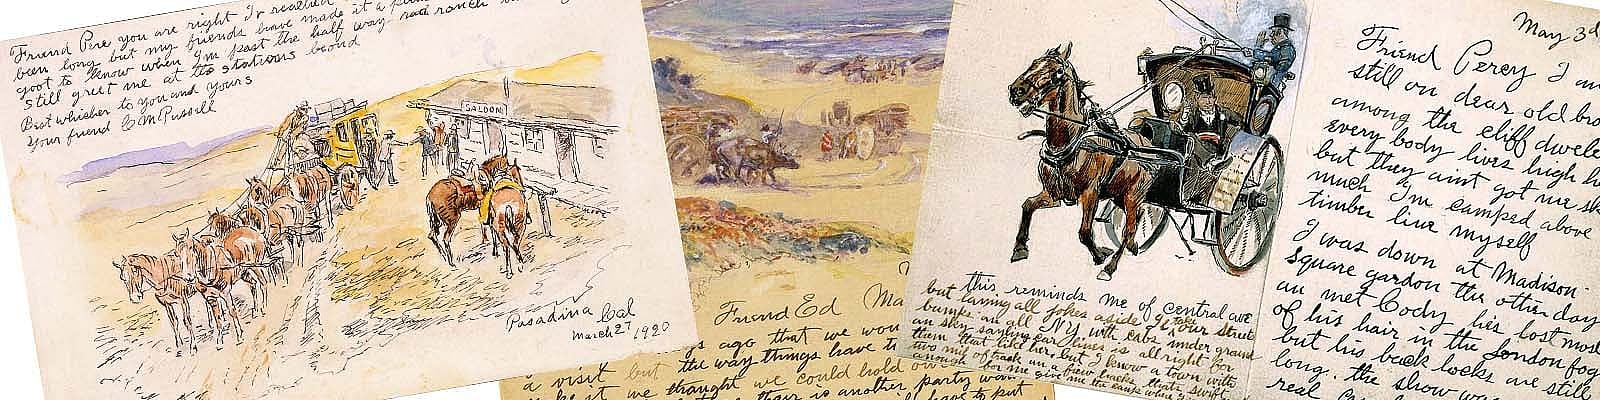 Friend Pere you are right Iv reached
been long but my friends have made it a
goot to know when I'm past the half way ranch
still greet me at the stations beond
Best whishes to you and yours
Your friend C M Russell
SALOON
Pasadina Cal
March 27 1920
Friend Ed Ma
s ago that we wou
a visit but the way things have t
we thought we could hold
is another party wan
to put
this reminds me of central ave
but laying all jokes aside
bunks an all NY with cabs under ground
an sky saying car lines is all right for
them that like her but I know a town with
two miles of track
enough for me give me the
May 3d
Friend Percy I am
still on dear old bro
among the cliff dwele
every body lives high h
but they aint got me sk
much I'm camped above
timber line myself
I was down at Madison-
Square gardon the other day
an met Cody hes lost most
of his hair in the London fog
but his back locks are still
long. the show was
real